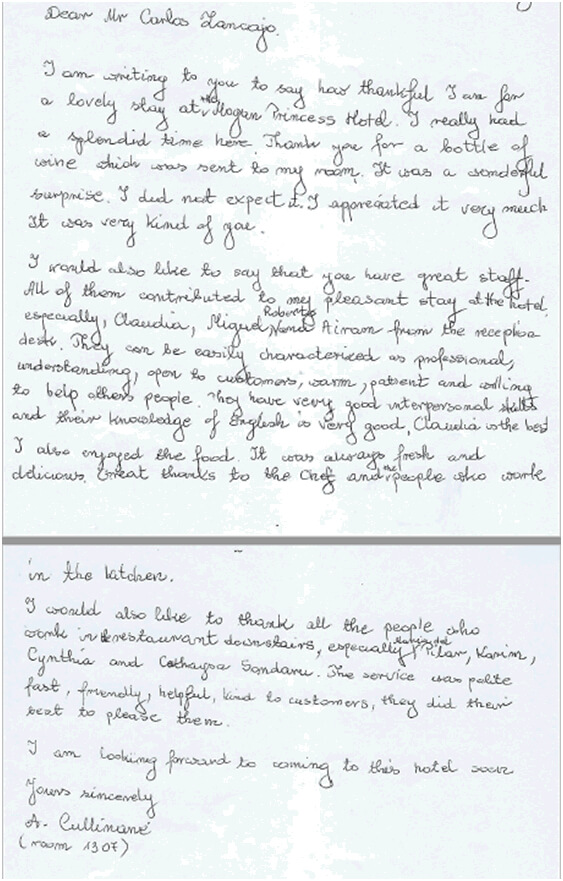 Dear Mr Carlos Zancajo.
I am writing to you to say how thankful I am for
a lovely stay at the Mogan Princess Hotel. I really had
a splendid time here. Thank you for a bottle of
wine which was sent to my room. It was a wonderful
surprise. I did not expect it. I appreciated it very much
It was very kind of you.
I would also like to say that you have great staff.
All of them contributed to my pleasant stay at the hotel,
especially, Claudia, Miguel, Roberto, and Airam from the reception
desk. They can be easily characterized as professional,
understanding, open to customers, warm, patient and willing
to help others people. They have very good interpersonal skills
and their knowledge of English is very good, Claudia is the best
I also enjoyed the food. It was always fresh and
delicious. Great thanks to the Chef and the people who work
in the kitchen.
I would also like to thank all the people who
work in restaurant downstairs, especially Pilar, Karim,
Cynthia and Cathaysa. The service was polite
fast, friendly, helpful, kind to customers, they did their
best to please them.
I am looking forward to coming to this hotel soon
Yours sincerely
A. Cullinane
(room 1307)